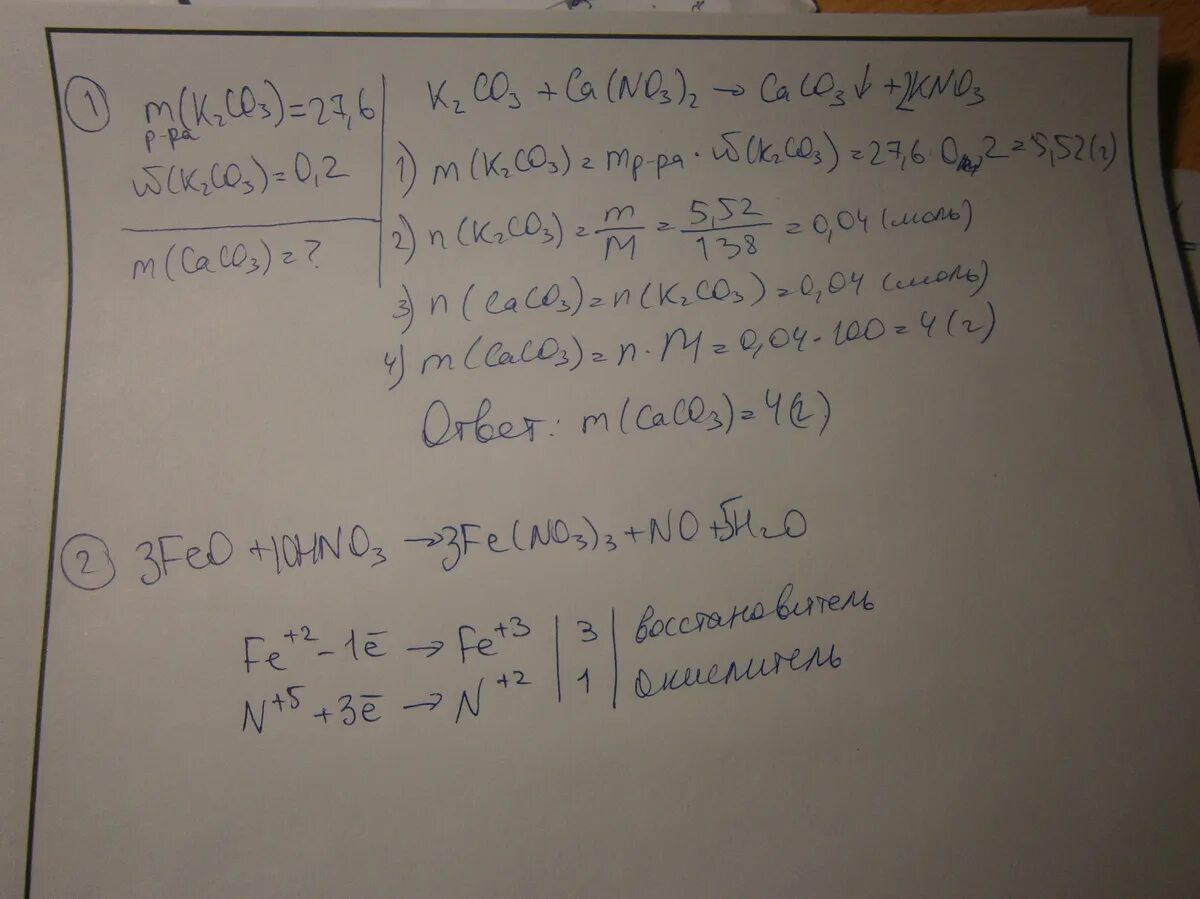 1
m(K₂CO₃)=27,6
р-ра
ω(K₂CO₃)=0,2
m(CaCO₃)=?
K₂CO₃ + Ca(NO₃)₂ → CaCO₃↓ + 2KNO₃
1) m(K₂CO₃) = mр-ра · ω(K₂CO₃) = 27,6 · 0,2 = 5,52(г)
2) n(K₂CO₃) = m/M = 5,52/138 = 0,04 (моль)
3) n(CaCO₃) = n(K₂CO₃) = 0,04 (моль)
4) m(CaCO₃) = n · M = 0,04 · 100 = 4(г)
Ответ: m(CaCO₃) = 4(г)
2
3FeO + 10HNO₃ → 3Fe(NO₃)₃ + NO + 5H₂O
Fe⁺² - 1ē → Fe⁺³ | 3 | восстановитель
N⁺⁵ + 3ē → N⁺² | 1 | окислитель